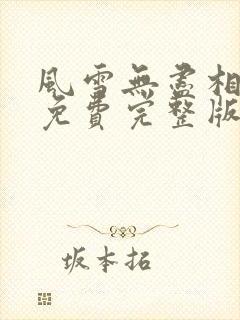 風雪無盡相
免費完整版
坂本拓